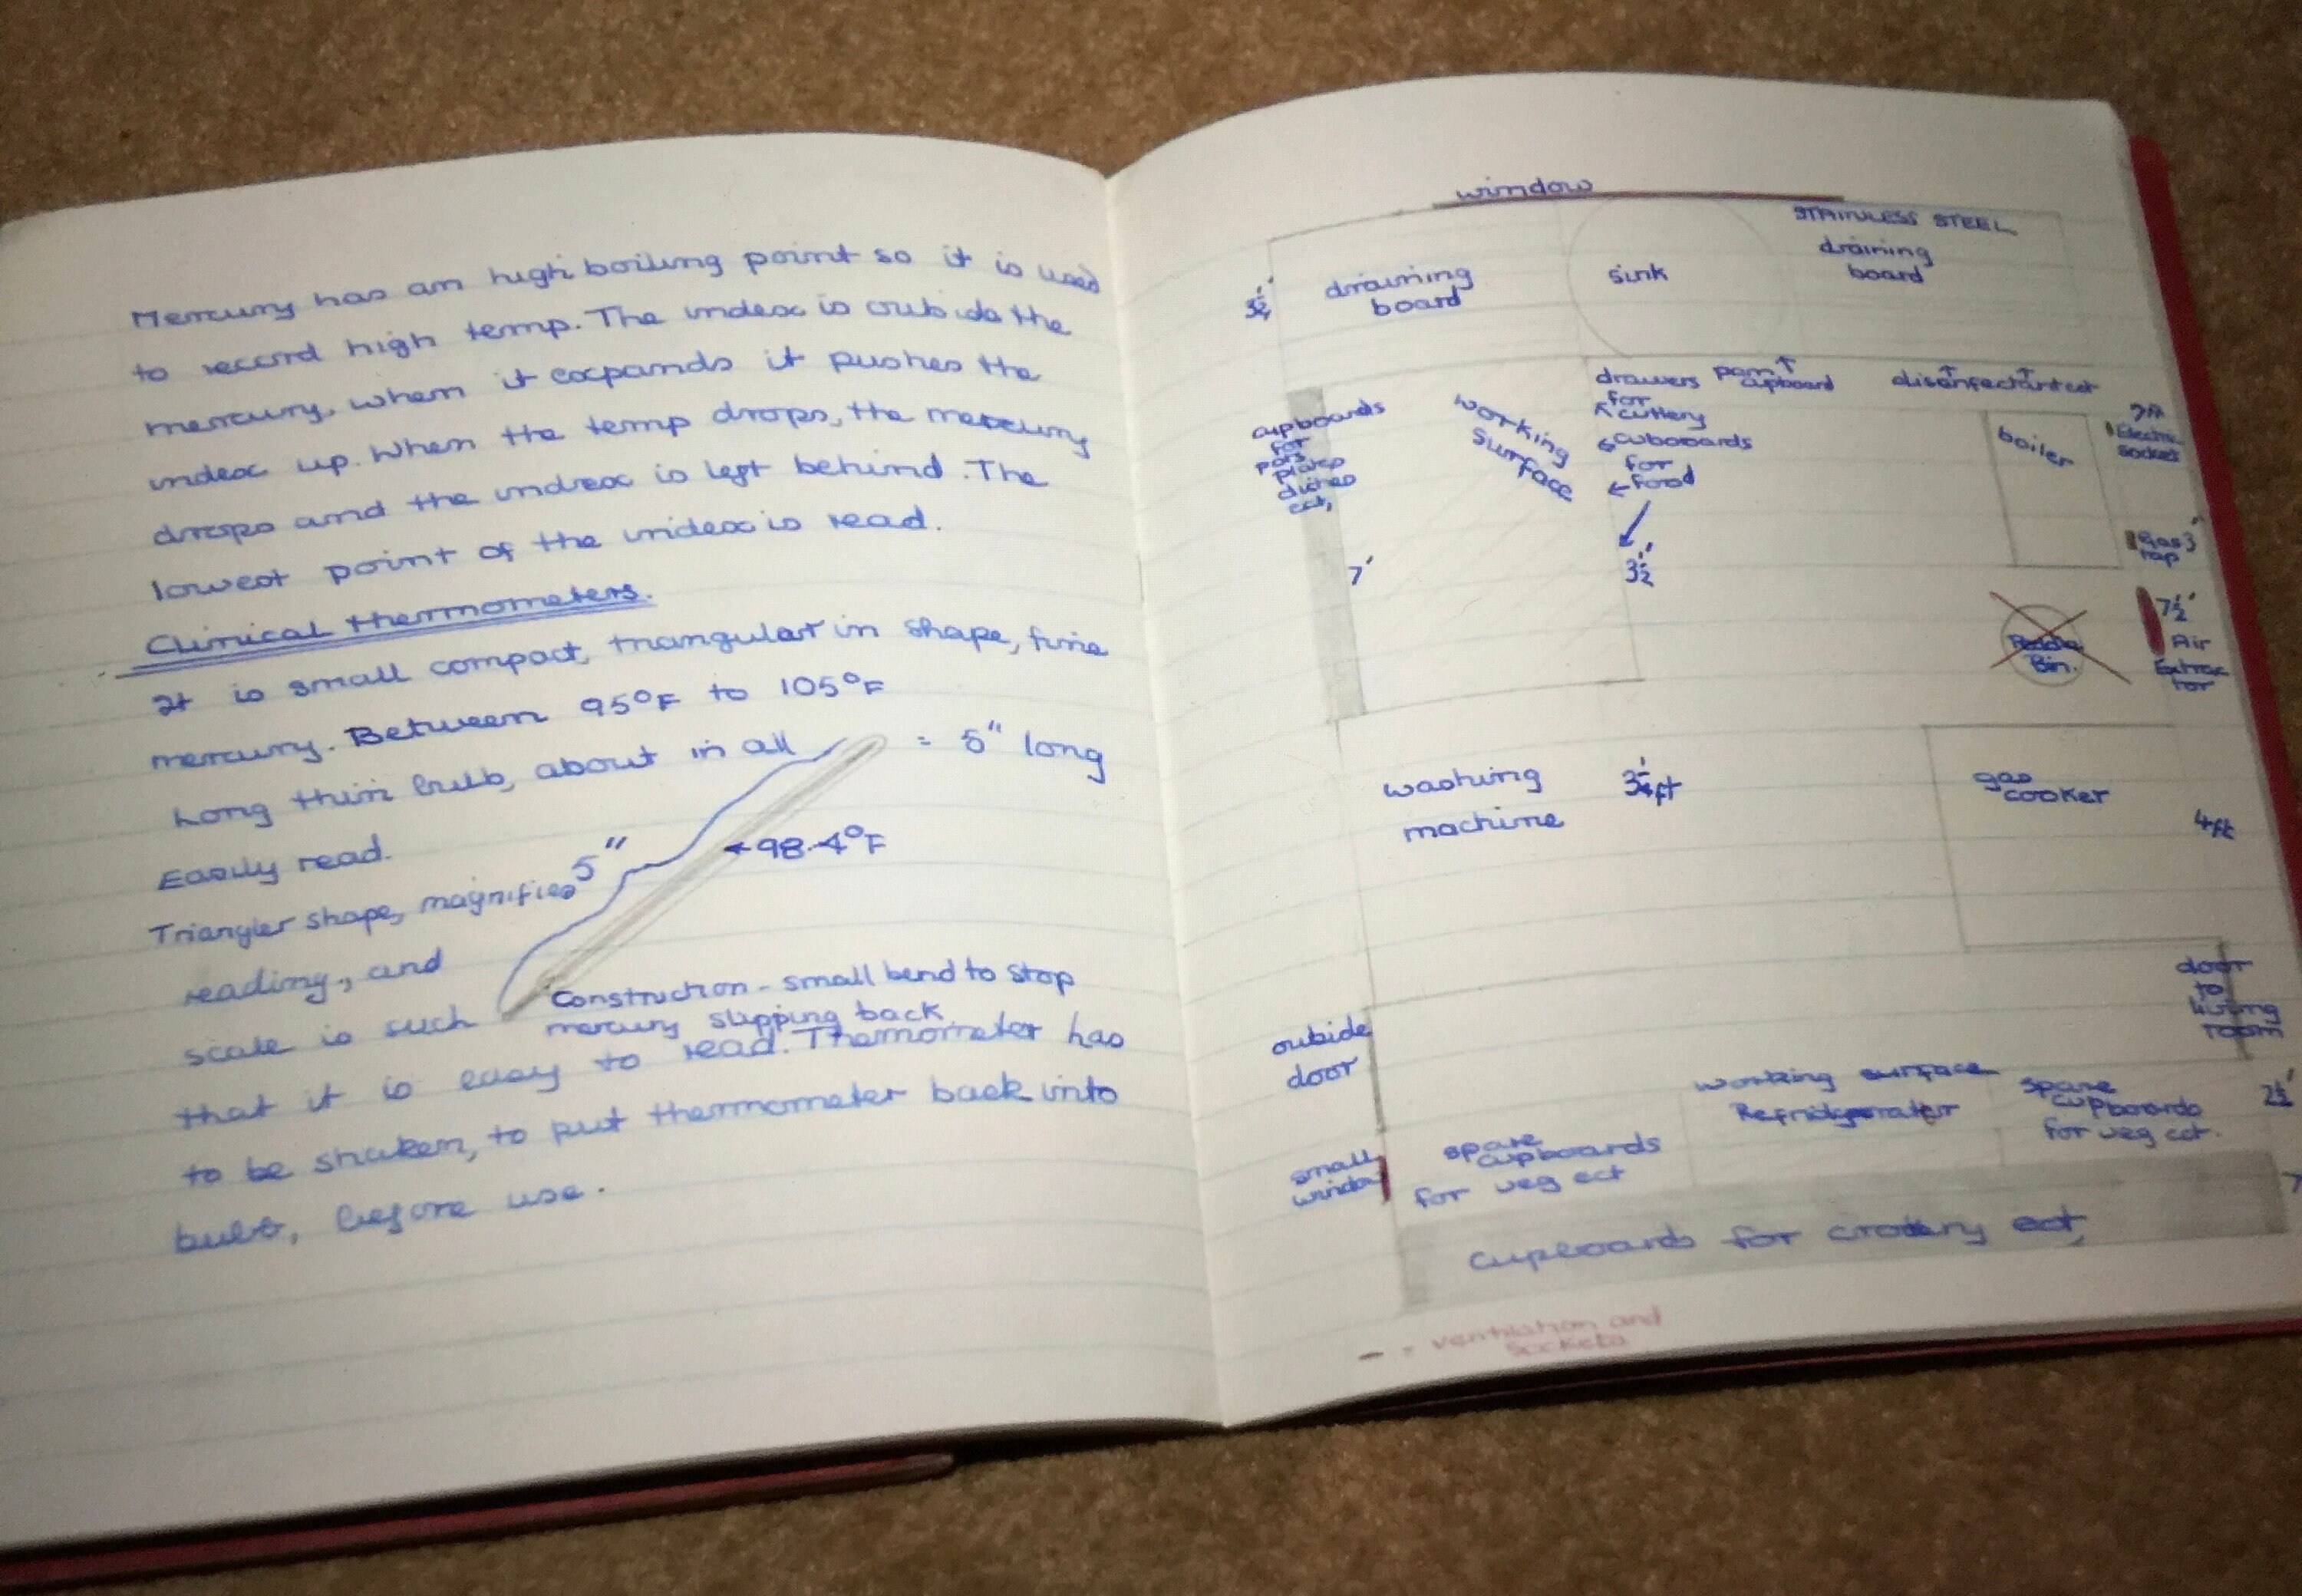 Mercury has an high boiling point so it is used
to record high temp. The index is outside the
mercury, when it expands it pushes the
index up. When the temp drops, the mercury
drops and the index is left behind. The
lowest point of the index is read.
Clinical thermometers.
It is small compact, triangular in shape, fine
mercury. Between 95°F to 105°F
Long thin bulb, about in all = 5" long
Easily read.
5"
←98.4°F
Triangler shape, magnifies
reading, and
scale is such
Construction - small bend to stop
mercury slipping back
that it is easy to read. Themometer has
to be shaken, to put thermometer back into
bulb, before use.
window
STAINLESS STEEL
draining
board
sink
draining
board
3½'
drawers
for
cutlery
pan
cupboard
disinfectant ect
cupboards
for
pans
plates
dishes
ect,
working
surface
cuboards
for
food
boiler
Electric
socket
7'
3½'
Gas 3'
tap
Bin.
7½'
Air
Extrac
tor
washing
machine
3¼ft
gas
cooker
4ft
door
to
living
room
outside
door
working surface
Refridgerator
spare
cupboards
for veg ect.
2½'
small
window
spare
cupboards
for veg ect
7
cupboards for crockery ect,
- = ventilation and
sockets